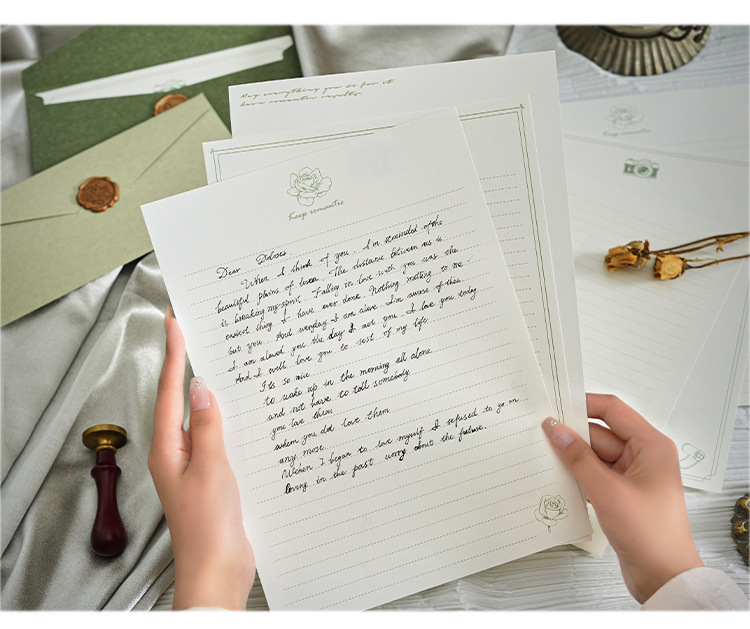 May everything you do from it
have romantic results.
Keep romantic
Dear Dolores
When I think of you. I'm reminded of the
beautiful plains of Iowa. The distance between us is
is breaking my spirit. Fallen in love with you was the
easiest thing I have ever done. Nothing matters to me
but you. And everyday I am alive. I'm aware of this.
I am aloved you the day I met you. I love you today.
And I will love you to rest of my life
It's so nice
to wake up in the morning all alone
and not have to tell somebody
you love them
when you don't love them
any more.
When I began to love myself I refused to go on
living in the past worry about the future.
Keep romantic